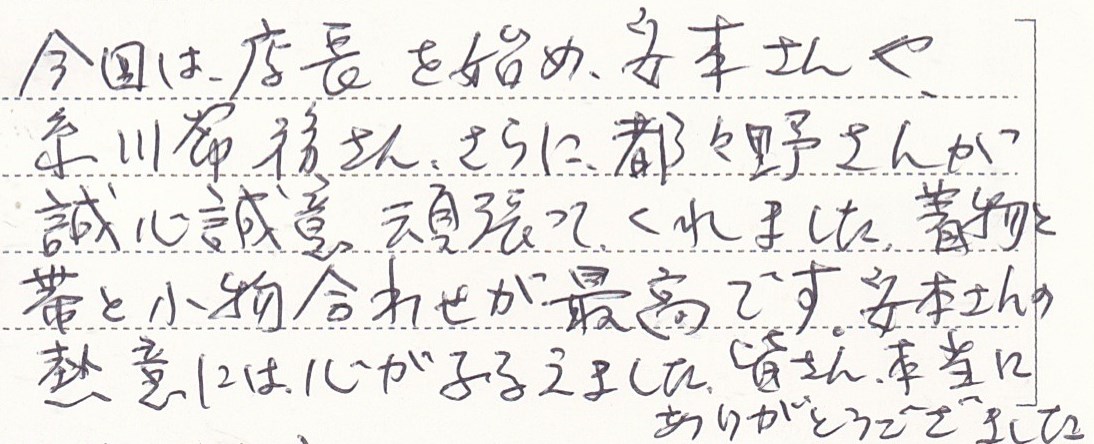 今回は、店長を始め、安本さんや、
糸川 さん、さらに、都々野さんが
誠心誠意、頑張って、くれました。着物と
帯と小物合わせが最高です。安本さんの
熱意には、心がふるえました。皆さん、本当に
ありがとうございました